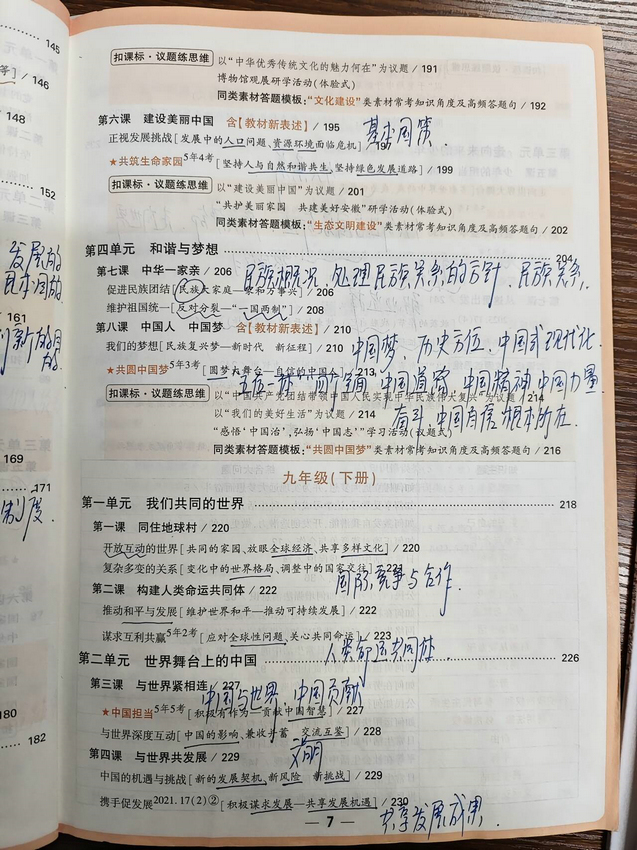 145
等]/146
148
152
发展的
161
创新的目
169
171
制度
180
182
扣课标·议题练思维 以“中华优秀传统文化的魅力何在”为议题/191
博物馆观展研学活动(体验式)
同类素材答题模板:“文化建设”类素材常考知识角度及高频答题句/192
第六课 建设美丽中国 含【教材新表述】/195 基本国策
正视发展挑战[发展中的人口问题、资源环境面临危机]/197
★共筑生命家园5年4考[坚持人与自然和谐共生,坚持绿色发展道路]/199
扣课标·议题练思维 以“建设美丽中国”为议题/201
“共护美丽家园 共建美好安徽”研学活动(体验式)
同类素材答题模板:“生态文明建设”类素材常考知识角度及高频答题句/202
第四单元 和谐与梦想 204
第七课 中华一家亲/206 民族概况、处理民族关系的方针、民族关系.
促进民族团结[民族大家庭—家和万事兴]/206
维护祖国统一[反对分裂—“一国两制”]/208
第八课 中国人 中国梦 含【教材新表述】/210
我们的梦想[民族复兴梦—新时代 新征程]/210 中国梦、历史方位、中国式现代化
★共圆中国梦5年3考[圆梦大舞台—自信的中国人]/213
五位一体 四个全面 中国道路 中国精神 中国力量
扣课标·议题练思维 以“中国共产党团结带领中国人民实现中华民族伟大复兴”为议题/214
以“我们的美好生活”为议题/214 奋斗、中国自信 根本所在.
“感悟‘中国治’,弘扬‘中国志’”学习活动(议题式)
同类素材答题模板:“共圆中国梦”类素材常考知识角度及高频答题句/216
九年级(下册)
第一单元 我们共同的世界 218
第一课 同住地球村/220
开放互动的世界[共同的家园、放眼全球经济、共享多样文化]/220
复杂多变的关系[变化中的世界格局、调整中的国家交往]/221
第二课 构建人类命运共同体/222 国际竞争与合作.
推动和平与发展[维护世界和平—推动可持续发展]/222
谋求互利共赢5年2考[应对全球性问题、关心共同命运]/223
人类命运共同体.
第二单元 世界舞台上的中国 226
第三课 与世界紧相连/227
中国与世界 中国贡献
★中国担当5年5考[积极有作为—贡献中国智慧]/227
与世界深度互动[中国的影响、兼收并蓄 交流互鉴]/228
文明
第四课 与世界共发展/229
中国的机遇与挑战[新的发展契机、新风险 新挑战]/229
携手促发展2021.17(2)②[积极谋求发展—共享发展机遇]/230
共享发展成果.
— 7 —